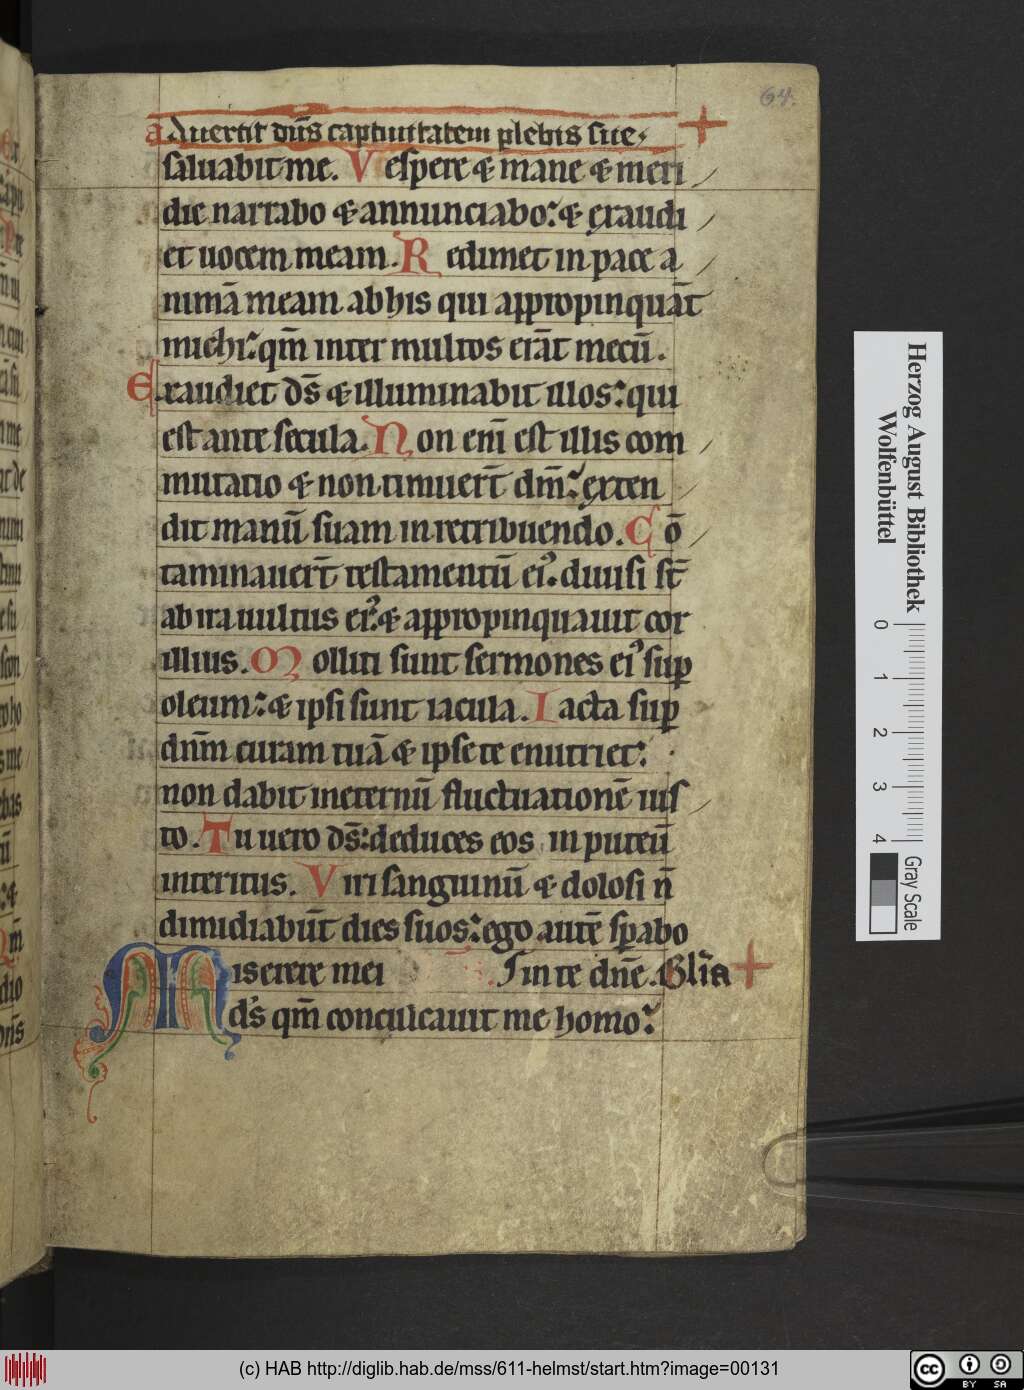 64.
aduertit dn̄s captiuitatem plebis sue,
saluabit me. Vespere & mane & meri
die narrabo & annunciabo: & exaudi
et uocem meam. Redimet in pace a
nimā meam ab his qui appropinquāt
michi: qm̄ inter multos erāt mecū.
Exaudiet ds̄ & illuminabit illos: qui
est ante secula. Non eni᷒ est illis com
mutatio & non timuer̄t dm̄: exten
dit manū suam in retribuendo. Cō
taminauer̄t testamentū ei᷒. diuisi st̄
ab ira uultus ei᷒: & appropinquauit cor
illius. Molliti sunt sermones ei᷒ sup
oleum: & ipsi sunt iacula. Iacta sup
dnm̄ curam tuā & ipse te enutriet:
non dabit in eternū fluctuationē ius
to. Tu uero ds̄: deduces eos in puteū
interitus. Viri sanguinū & dolosi n̄
dimidiabūt dies suos: ego autē spabo
in te dn̄e. Glīa
Miserere mei
ds̄ qm̄ conculcauit me homo:
Herzog August Bibliothek
Wolfenbüttel
0 1 2 3 4
Gray Scale
(c) HAB http://diglib.hab.de/mss/611-helmst/start.htm?image=00131
cc BY SA